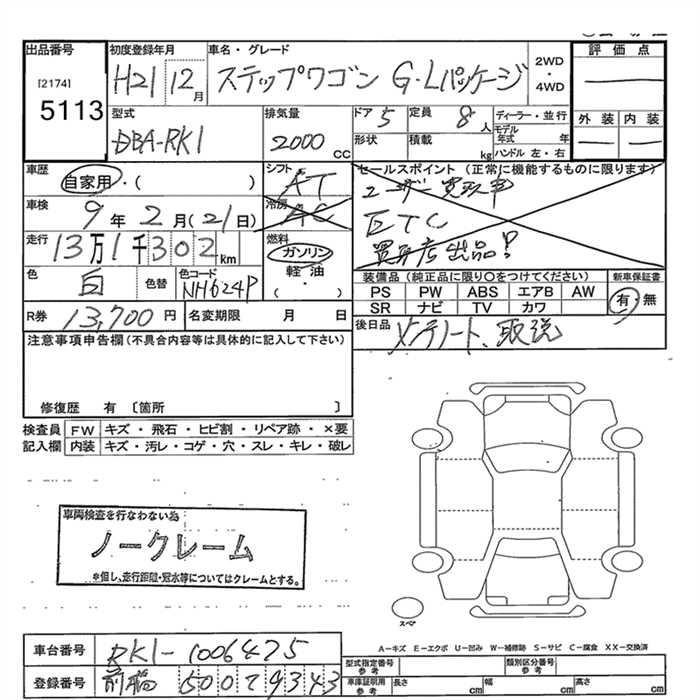 出品番号
[2174]
5113
初度登録年月
H21 12月
車名・グレード
ステップワゴン G・Lパッケージ
2WD
・
4WD
評価点
外装 内装
型式
DBA-RK1
排気量
2000 CC
ドア 5
定員 8人
形状
積載 kg
ディーラー・並行
モデル年式 年
ハンドル 左・右
車歴
自家用・( )
シフト
AT
車検
9年2月(21日)
冷房
AC
走行
13万1千302km
燃料
ガソリン
軽油
・( )
色
白
色替
色コード
NH624P
R券 13,700円
名変期限 月 日
セールスポイント(正常に機能するものに限ります)
ユーザー買取車
ETC
買取店出品!
装備品(純正品に限り○をつけてください)
PS PW ABS エアB AW
SR ナビ TV カワ
新車保証書
有・無
後日品 メンテノート、取説
注意事項申告欄(不具合内容等は具体的に記入して下さい)
修復歴 有〔箇所 〕
検査員記入欄
FW キズ・飛石・ヒビ割・リペア跡・×要
内装 キズ・汚レ・コゲ・穴・スレ・キレ・破レ
車両検査を行なわない為
ノークレーム
※但し、走行距離・冠水等についてはクレームとする。
スペア
A-キズ E-エクボ U-凹み W-補修跡 S-サビ C-腐食 XX-交換済
車台番号 RK1-1006475
登録番号 前橋 500 7 9343
型式指定番号 参考
類別区分番号 参考
車庫証明用 参考
長さ cm 幅 cm 高さ cm